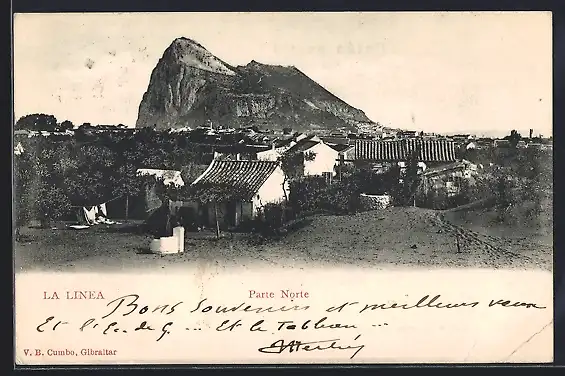 LA LINEA Parte Norte
Bons Souvenirs et meilleurs vœux
Et l'E de G ... Et le Tableau ...
V. B. Cumbo, Gibraltar